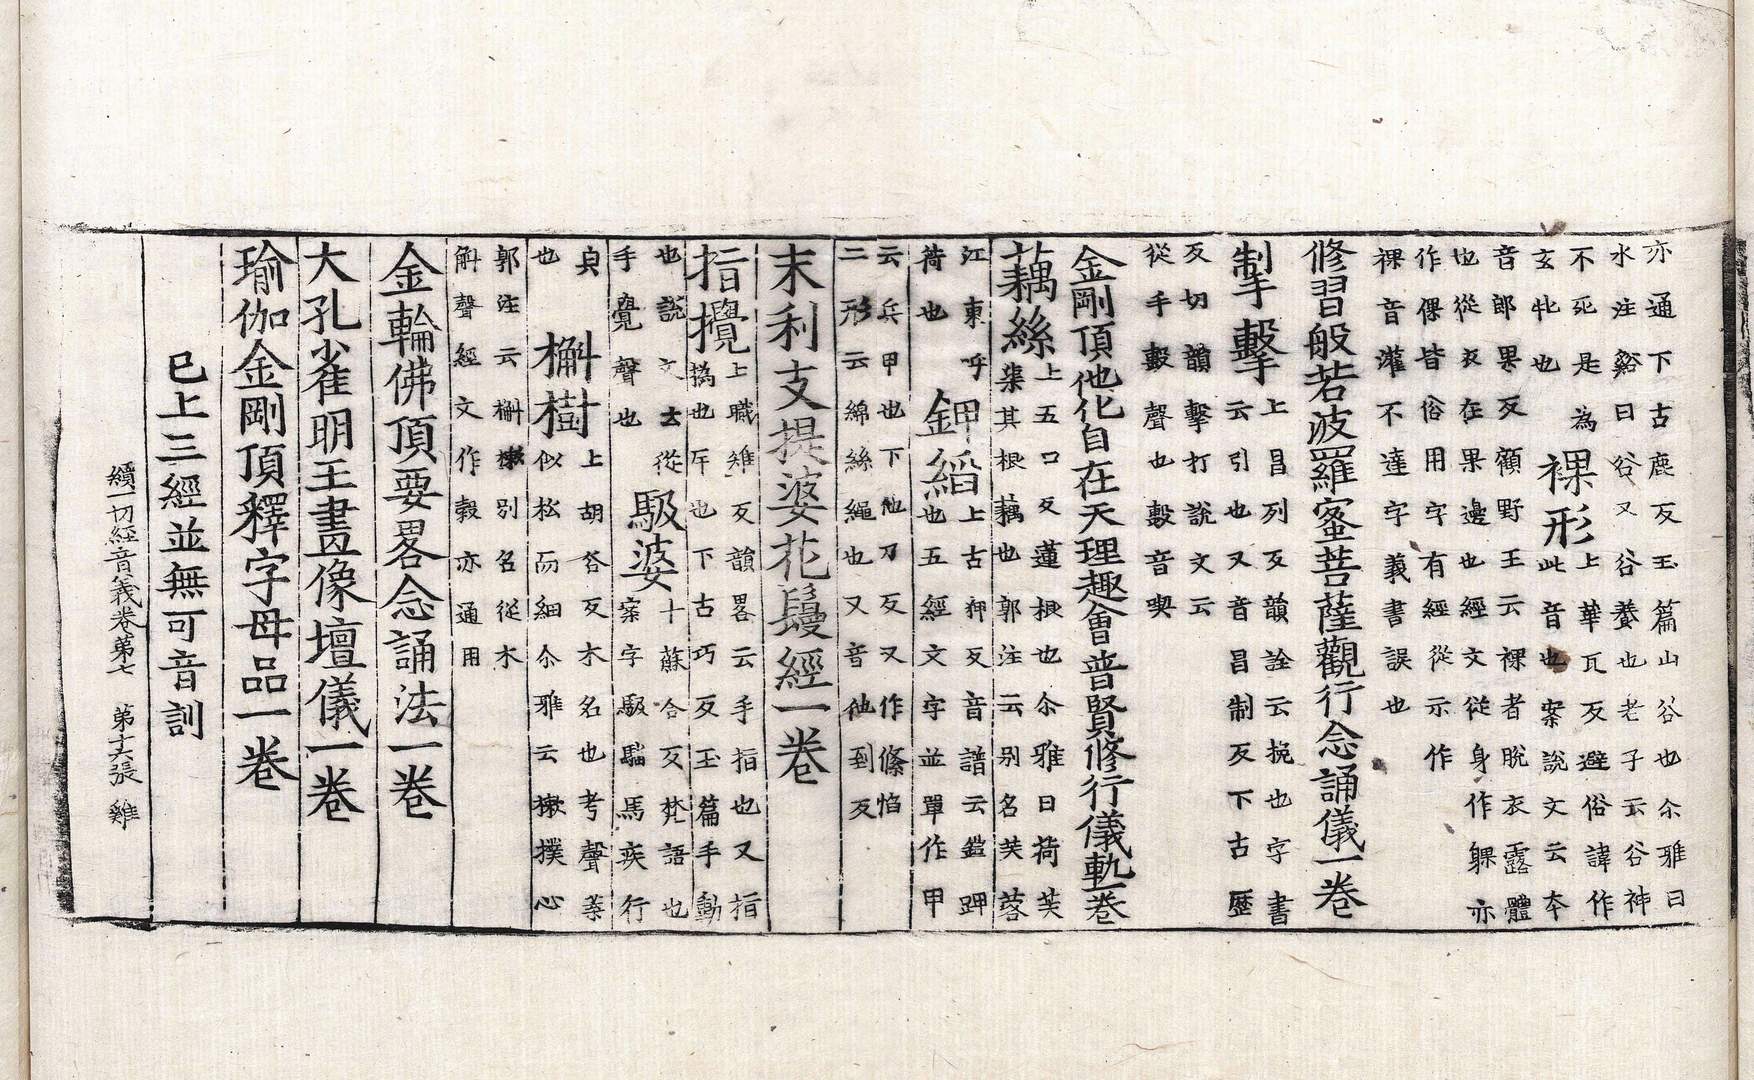 亦通下古鹿反玉篇山谷也尒雅曰
水注谿曰谷又谷養也老子云谷神
不死是為
玄牝也
裸形
上華瓦反避俗諱作
此音也案說文云夲
音郎果反顧野王云裸者脫衣露體
也從衣在果邊也經文從身作躶亦
作倮皆俗用字有經從示作
祼音灌不達字義書誤也
修習般若波羅蜜菩薩觀行念誦儀一卷
掣擊
上昌列反韻詮云挽也字書
云引也又音昌制反下古歷
反切韻擊打說文云
從手毄聲也毄音喫
金剛頂他化自在天理趣會普賢修行儀軌一卷
藕絲
上五口反蓮根也尒雅曰荷芙
蕖其根藕也郭注云別名芙蓉
江東呼
荷也
鉀縚
上古狎反音譜云鎧鉀
也五經文字並單作甲
云兵甲也下他刀反又作絛縚
二形云綿絲繩也又音他到反
末利支提婆花鬘經一卷
指攪
上職雉反韻畧云手指也又指
撝也斥也下古巧反玉篇手動
也說文云從
手覺聲也
馺婆
十蘇合反梵語也
案字馺馺馬疾行
皃
也
槲樹
上胡谷反木名也考聲等
似松而細尒雅云樕撲心
郭注云槲樕別名從木
斛聲經文作㲉亦通用
金輪佛頂要畧念誦法一卷
大孔雀明王畫像壇儀一卷
瑜伽金剛頂釋字母品一卷
已上三經並無可音訓
續一切經音義卷第七 第十六張 雞